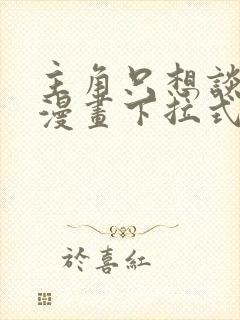 主角只想談
漫畫下拉式
於喜紅